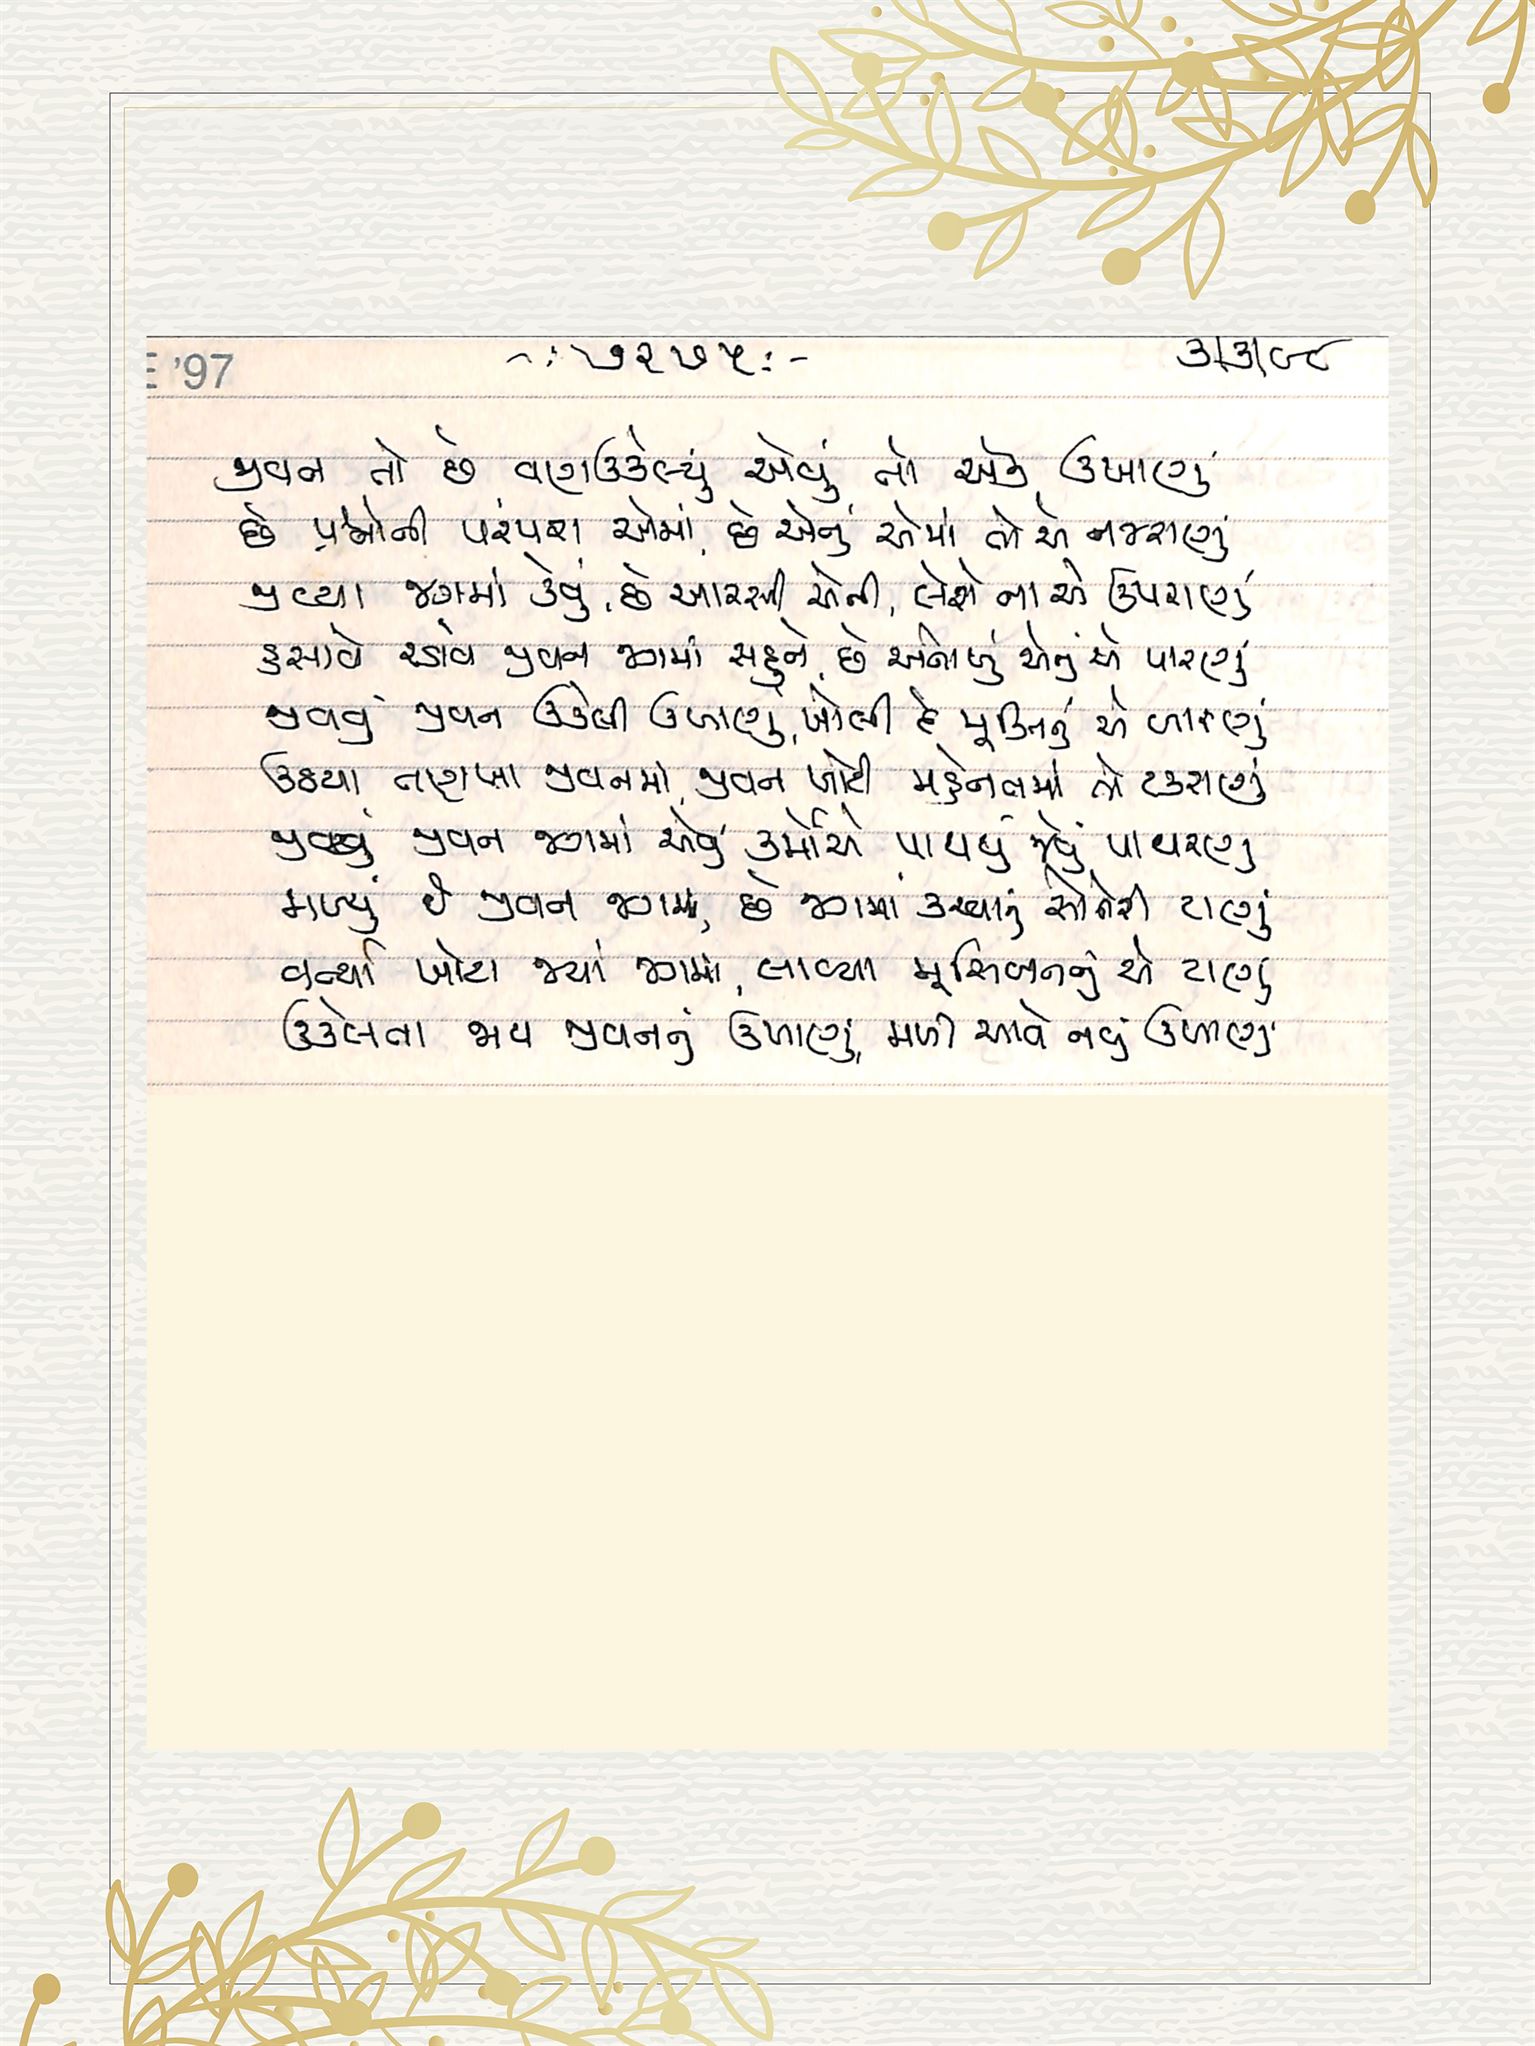 E '97
-: ૭૨૭૫ :-
૩/૩/૯૮
જીવન તો છે વણઉકેલ્યું એવું તો એક ઉખાણું
છે પ્રશ્નોની પરંપરા એમાં, છે એનું એમાં તો એ નજરાણું
જીવ્યા જગમાં કેવું, છે આરસી એની, લેશો ના એ ઉપરાણું
હસાવે રડાવે જીવન જગમાં સહુને, છે અનોખું એનું એ પારણું
જીવવું જીવન ઉકેલી ઉખાણું, ખોલી દે મુક્તિનું એ બારણું
ઉઠયા તણખા જીવનમાં, જીવન ખોટી મહેનતમાં તો ટકરાણું
જીવવું જીવન જગમાં એવું કર્મોએ પાથર્યું જેવું પાથરણું
મળ્યું જે જીવન જગમાં, છે જગમાં કરવાનું સોનેરી ટાણું
વર્ત્યા ખોટા જ્યાં જગમાં, લાવ્યા મુસીબતનું એ ટાણું
ઉકેલતા જાવ જીવનનું ઉખાણું, મળી આવે નવું ઉખાણું